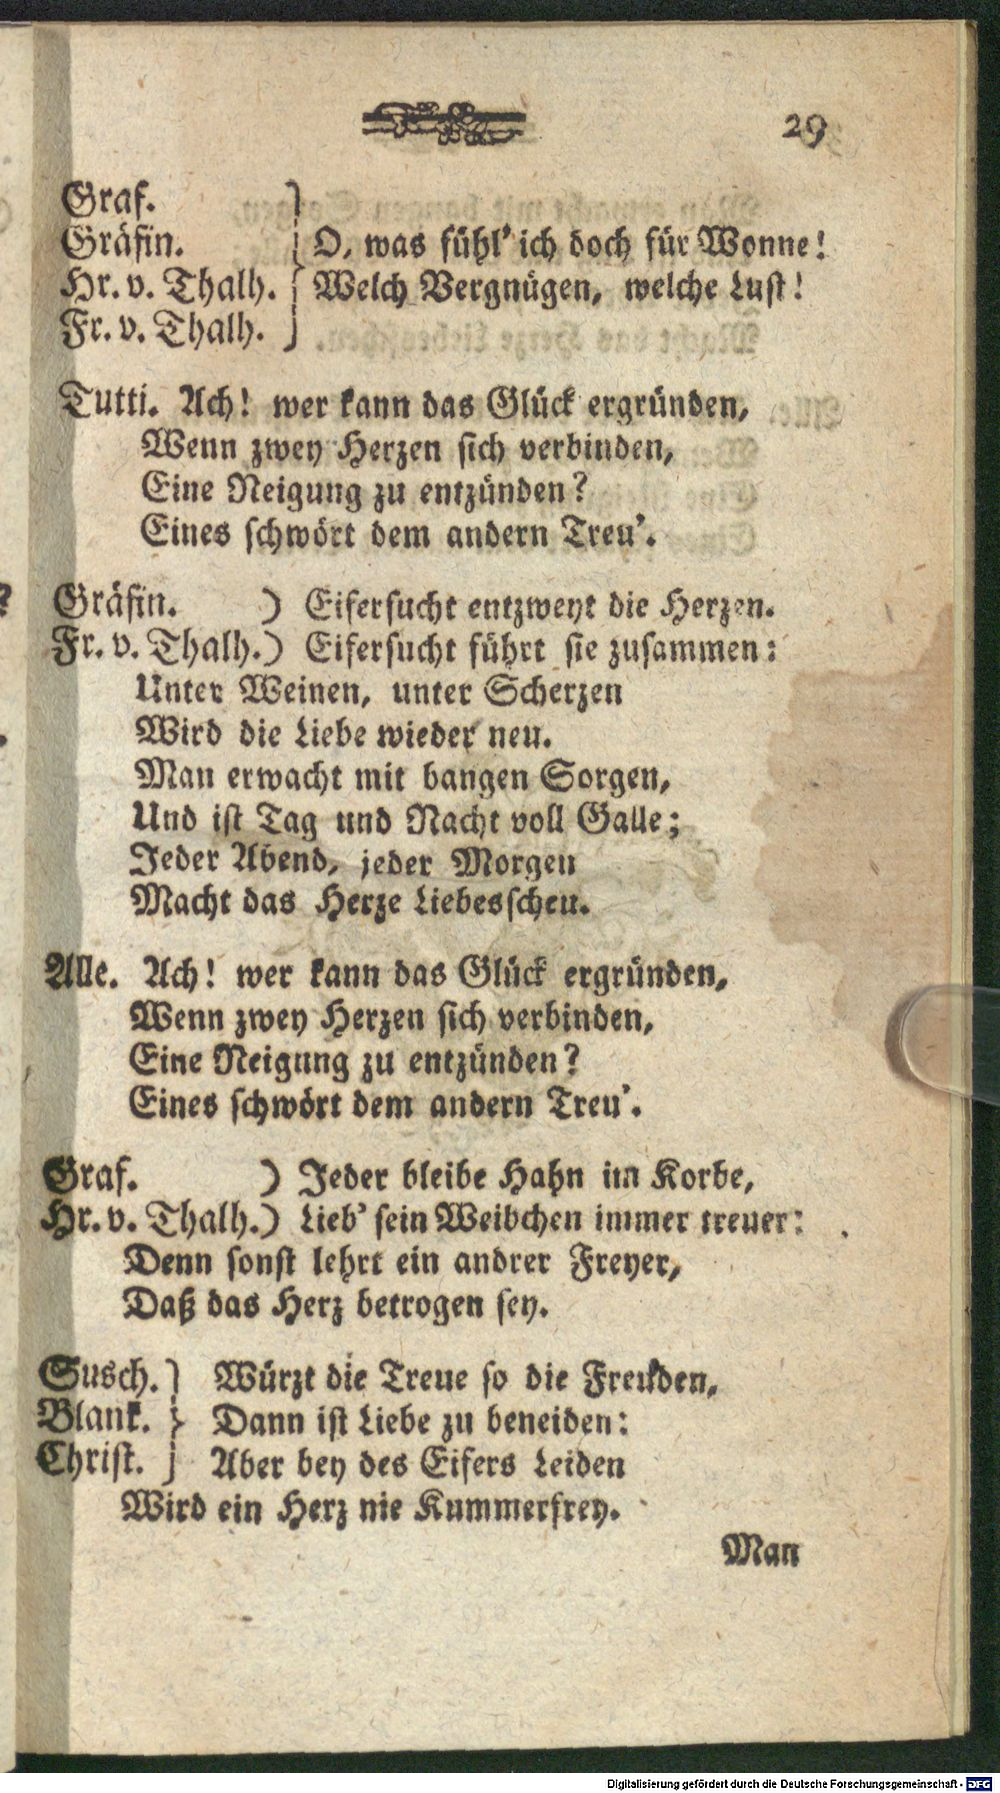 29
Graf.
Gräfin. O, was fühl' ich doch für Wonne!
Hr. v. Thalh. Welch Vergnügen, welche Lust!
Fr. v. Thalh.
Tutti. Ach! wer kann das Glück ergründen,
Wenn zwey Herzen sich verbinden,
Eine Neigung zu entzünden?
Eines schwört dem andern Treu'.
Gräfin. ) Eifersucht entzweyt die Herzen.
Fr. v. Thalh. ) Eifersucht führt sie zusammen:
Unter Weinen, unter Scherzen
Wird die Liebe wieder neu.
Man erwacht mit bangen Sorgen,
Und ist Tag und Nacht voll Galle;
Jeder Abend, jeder Morgen
Macht das Herze Liebesscheu.
Alle. Ach! wer kann das Glück ergründen,
Wenn zwey Herzen sich verbinden,
Eine Neigung zu entzünden?
Eines schwört dem andern Treu'.
Graf. ) Jeder bleibe Hahn im Korbe,
Hr. v. Thalh. ) Lieb' sein Weibchen immer treuer:
Denn sonst lehrt ein andrer Freyer,
Daß das Herz betrogen sey.
Susch. } Würzt die Treue so die Freuden,
Blank. } Dann ist Liebe zu beneiden:
Christ. } Aber bey des Eifers Leiden
Wird ein Herz nie Kummerfrey.
Man
Digitalisierung gefördert durch die Deutsche Forschungsgemeinschaft - DFG